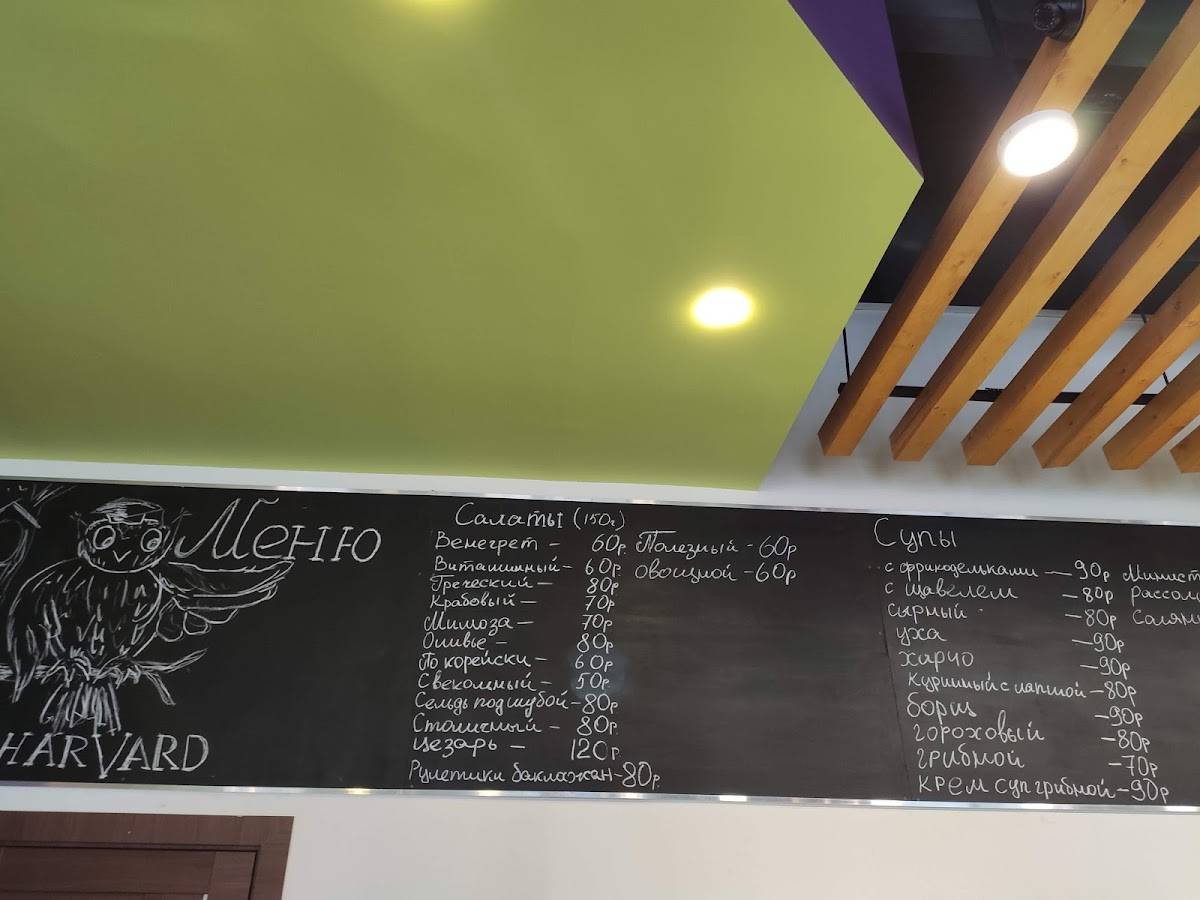 Меню
HARVARD
Салаты (150г)
Венегрет - 60р
Витаминный - 60р
Греческий - 80р
Крабовый - 70р
Мимоза - 70р
Оливье - 80р
По корейски - 60р
Свекольный - 50р
Сельдь под шубой - 80р
Столичный - 80р
Цезарь - 120р
Рулетики баклажан - 80р
Полезный - 60р
Овощной - 60р
Супы
с фрикадельками - 90р
с щавелем - 80р
сырный - 80р
уха - 90р
харчо - 90р
Куринный с лапшой - 80р
борщ - 90р
гороховый - 80р
грибной - 70р
крем суп грибной - 90р
Минист
рассол
Солян